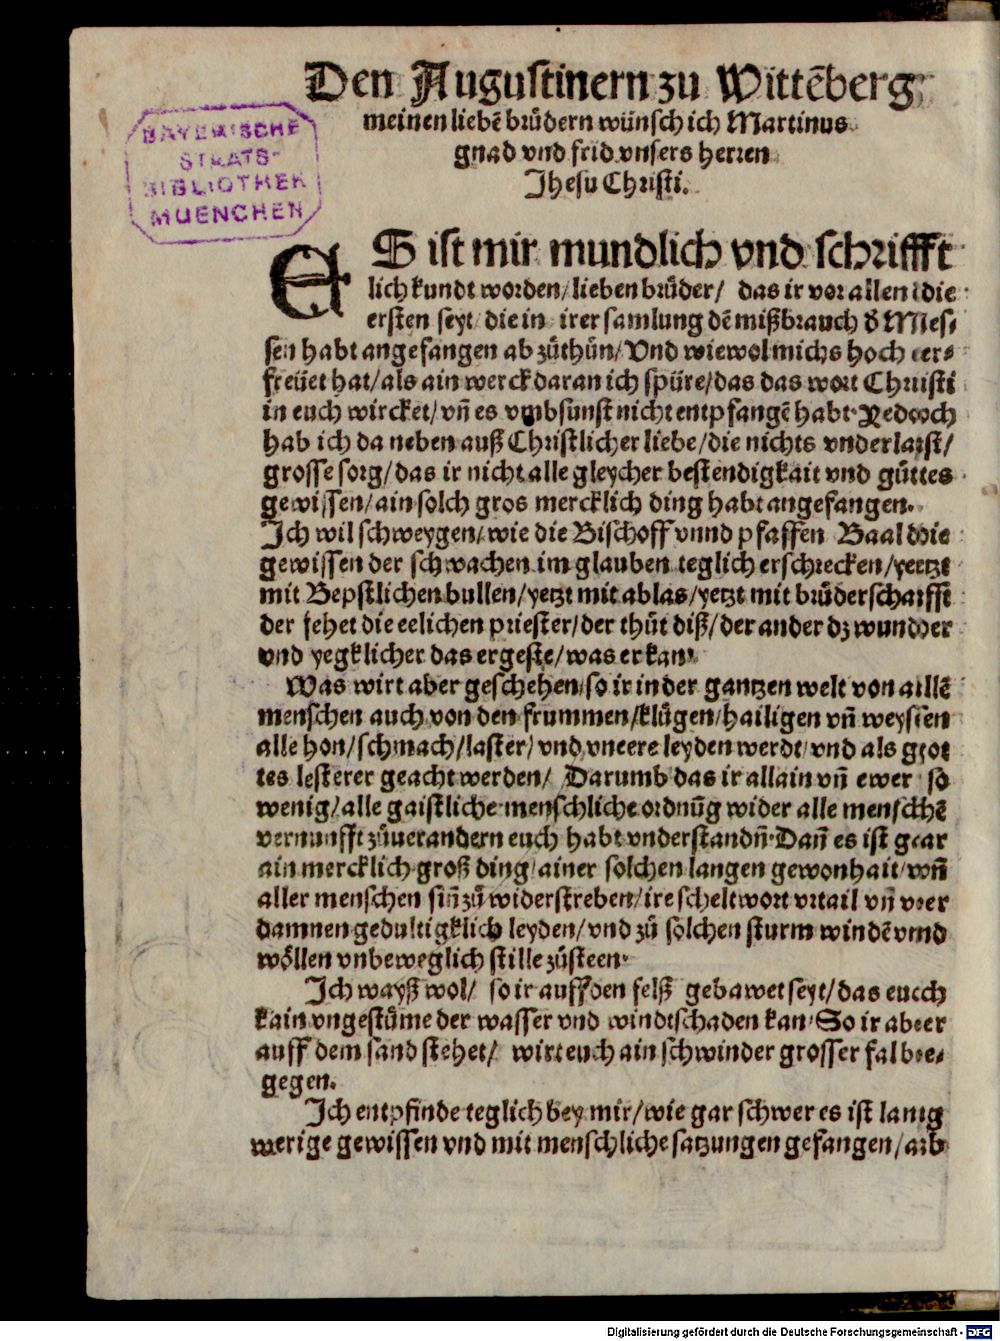 Den Augustinern zu Wittēberg
meinen liebē brůdern wünsch ich Martinus
gnad vnd frid vnsers herren
Jhesu Christi.
BAYERISCHE
STAATS-
BIBLIOTHEK
MUENCHEN
ES ist mir mundlich vnd schrifft
lich kundt worden/ lieben brůder/ das ir vor allen die
ersten seyt/ die in irer samlung dē mißbrauch d Mes-
sen habt angefangen ab zůthůn/ Vnd wiewol michs hoch er-
freüet hat/ als ain werck daran ich spüre/ das das wort Christi
in euch wircket/ vn̄ es vmbsunst nicht entpfangē habt. Yedoch
hab ich da neben auß Christlicher liebe/ die nichts vnderlaist/
grosse sorg/ das ir nicht alle gleycher bestendigkait vnd gůttes
gewissen/ ain solch gros mercklich ding habt angefangen.
Ich wil schweygen/ wie die Bischoff vnnd pfaffen Baal die
gewissen der schwachen im glauben teglich erschrecken/ yetzt
mit Bepstlichen bullen/ yetzt mit ablas/ yetzt mit brůderschafft
der fehet die eelichen priester/ der thůt diß/ der ander dz wunder
vnd yegklicher das ergeste/ was er kan.
Was wirt aber geschehen/ so ir in der gantzen welt von allē
menschen auch von den frummen/ klůgen/ hailigen vn̄ weysen
alle hon/ schmach/ laster/ vnd vneere leyden werdt/ vnd als got
tes lesterer geacht werden/ Darumb das ir allain vn̄ ewer so
wenig/ alle gaistliche menschliche ordnūg wider alle menschē
vernunfft zůuerandern euch habt vnderstandn̄. Dan̄ es ist gar
ain mercklich groß ding/ ainer solchen langen gewonhait/ vn̄
aller menschen sin̄ zů widerstreben/ ire scheltwort vrtail vn̄ ver
damnen gedultigklich leyden/ vnd zů solchen sturm windē vnd
wöllen vnbeweglich stille zůsteen.
Ich wayß wol/ so ir auff den felß gebawet seyt/ das euch
kain vngestůme der wasser vnd windt schaden kan. So ir aber
auff dem sand stehet/ wirt euch ain schwinder grosser fal be-
gegen.
Ich entpfinde teglich bey mir/ wie gar schwer es ist lang
werige gewissen vnd mit menschliche satzungen gefangen/ ab
Digitalisierung gefördert durch die Deutsche Forschungsgemeinschaft - DFG